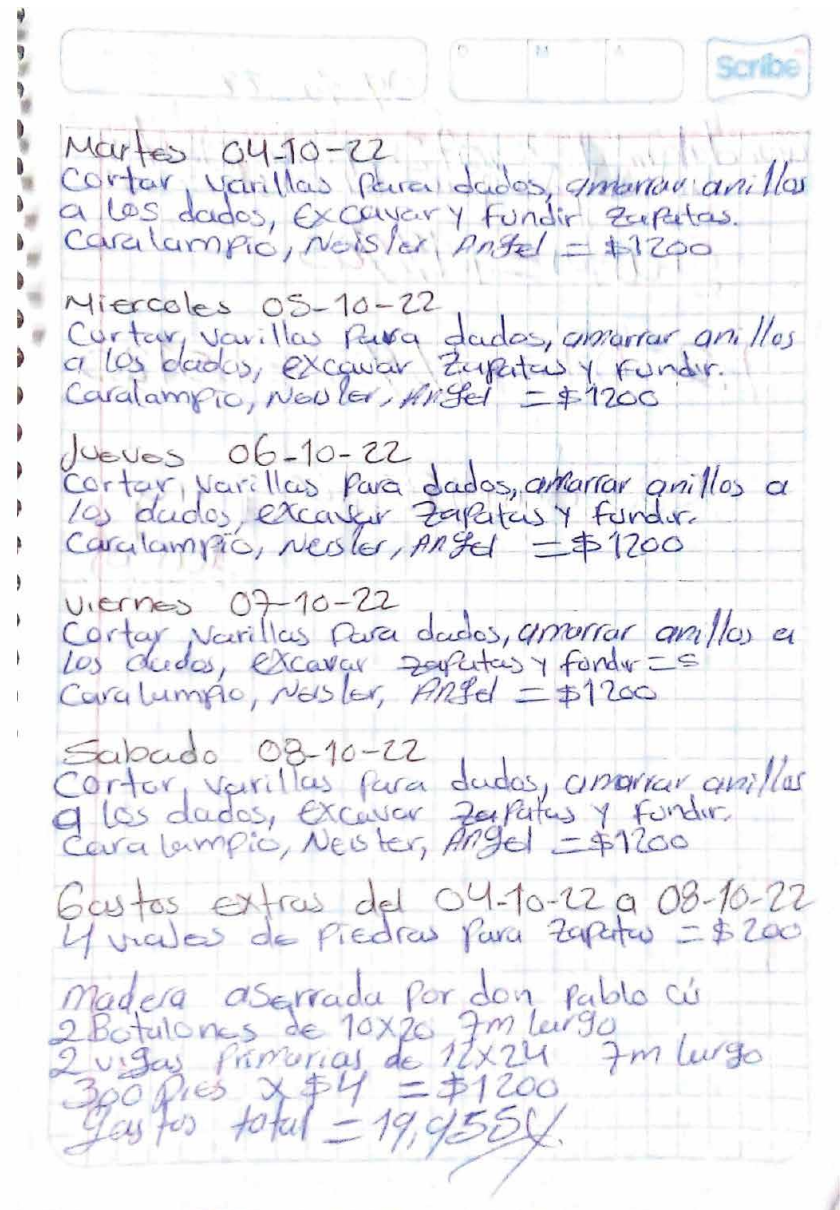 D M A
Scribe
Martes 04-10-22
Cortar, varillas para dados, amarrar anillos
a los dados, excavar y fundir zapatas.
Caralampio, Neisler, Angel = $1200
Miercoles 05-10-22
Cortar, varillas para dados, amarrar anillos
a los dados, excavar zapatas y fundir.
Caralampio, Neisler, Angel = $1200
Jueves 06-10-22
Cortar, varillas para dados, amarrar anillos a
los dados, excavar zapatas y fundir.
Caralampio, Neisler, Angel = $1200
Viernes 07-10-22
Cortar varillas para dados, amarrar anillos a
los dados, excavar zapatas y fundir = s
Caralampio, Neisler, Angel = $1200
Sabado 08-10-22
Cortar, varillas para dados, amarrar anillos
a los dados, excavar zapatas y fundir.
Caralampio, Neisler, Angel = $1200
Gastos extras del 04-10-22 a 08-10-22
4 viajes de piedras para zapatas = $200
madera aserrada por don Pablo
2 Botalones de 10x20 7m largo
2 vigas primarias de 12x24 7m largo
300 pies x $4 = $1200
gastos total =